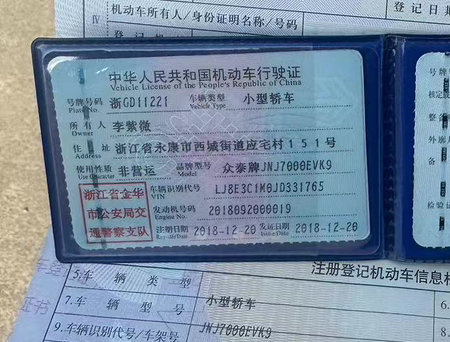 机动车所有人/身份证明名称/号码
登记日期
Ⅳ
登记机
中华人民共和国机动车行驶证
Vehicle License of the People's Republic of China
号牌号码 浙GD11221 车辆类型 小型轿车
Plate No. Vehicle Type
所有人 李紫微
Owner
住址 浙江省永康市西城街道应宅村151号
Address
使用性质 非营运 品牌型号 众泰牌JNJ7000EVK9
Use Character Model
浙江省金华市公安局交通警察支队
车辆识别代号 LJ8E3C1M0JD331765
VIN
发动机号码 2018092000019
Engine No.
注册日期 2018-12-20 发证日期 2018-12-20
Register Date Issue Date
号牌
核定
整备
外廓
备
检验
注册登记机动车信息
5.车辆类型
7.车辆型号 小型轿车 6.
证书
9.车辆识别代号/车架号 JNJ7000EVK9 8.